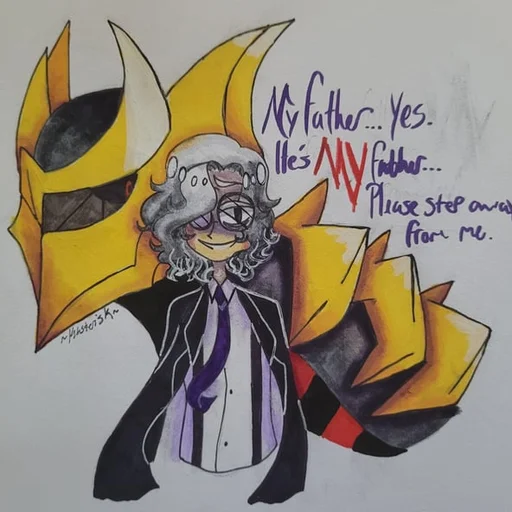 My father... Yes.
He's MY father...
Please step away
from me.